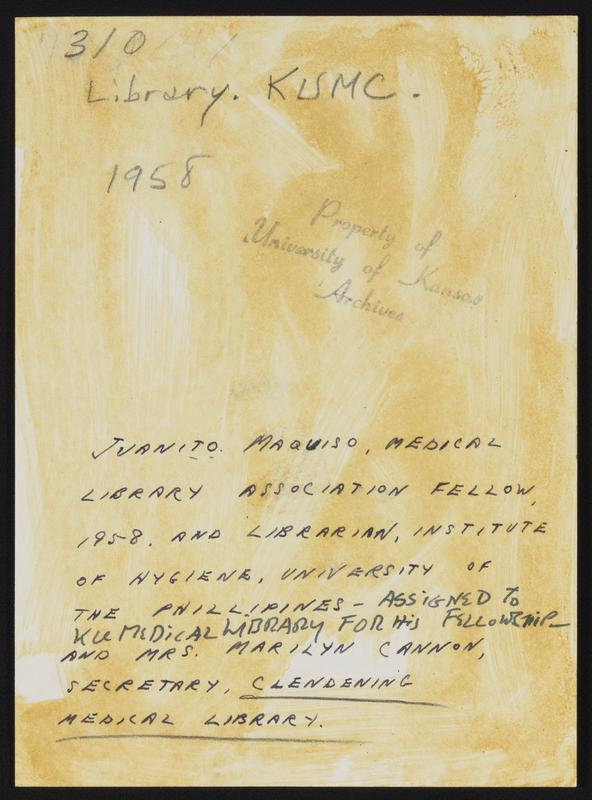 3/0
Library. KUMC.
1958
Property of
University of Kansas
Archives
JUANITO. MAQUISO, MEDICAL
LIBRARY ASSOCIATION FELLOW,
1958. AND LIBRARIAN, INSTITUTE
OF HYGIENE, UNIVERSITY OF
THE PHILLIPINES - ASSIGNED TO
KU MEDICAL LIBRARY FOR HIS FELLOWSHIP—
AND MRS. MARILYN CANNON,
SECRETARY, CLENDENING
MEDICAL LIBRARY.